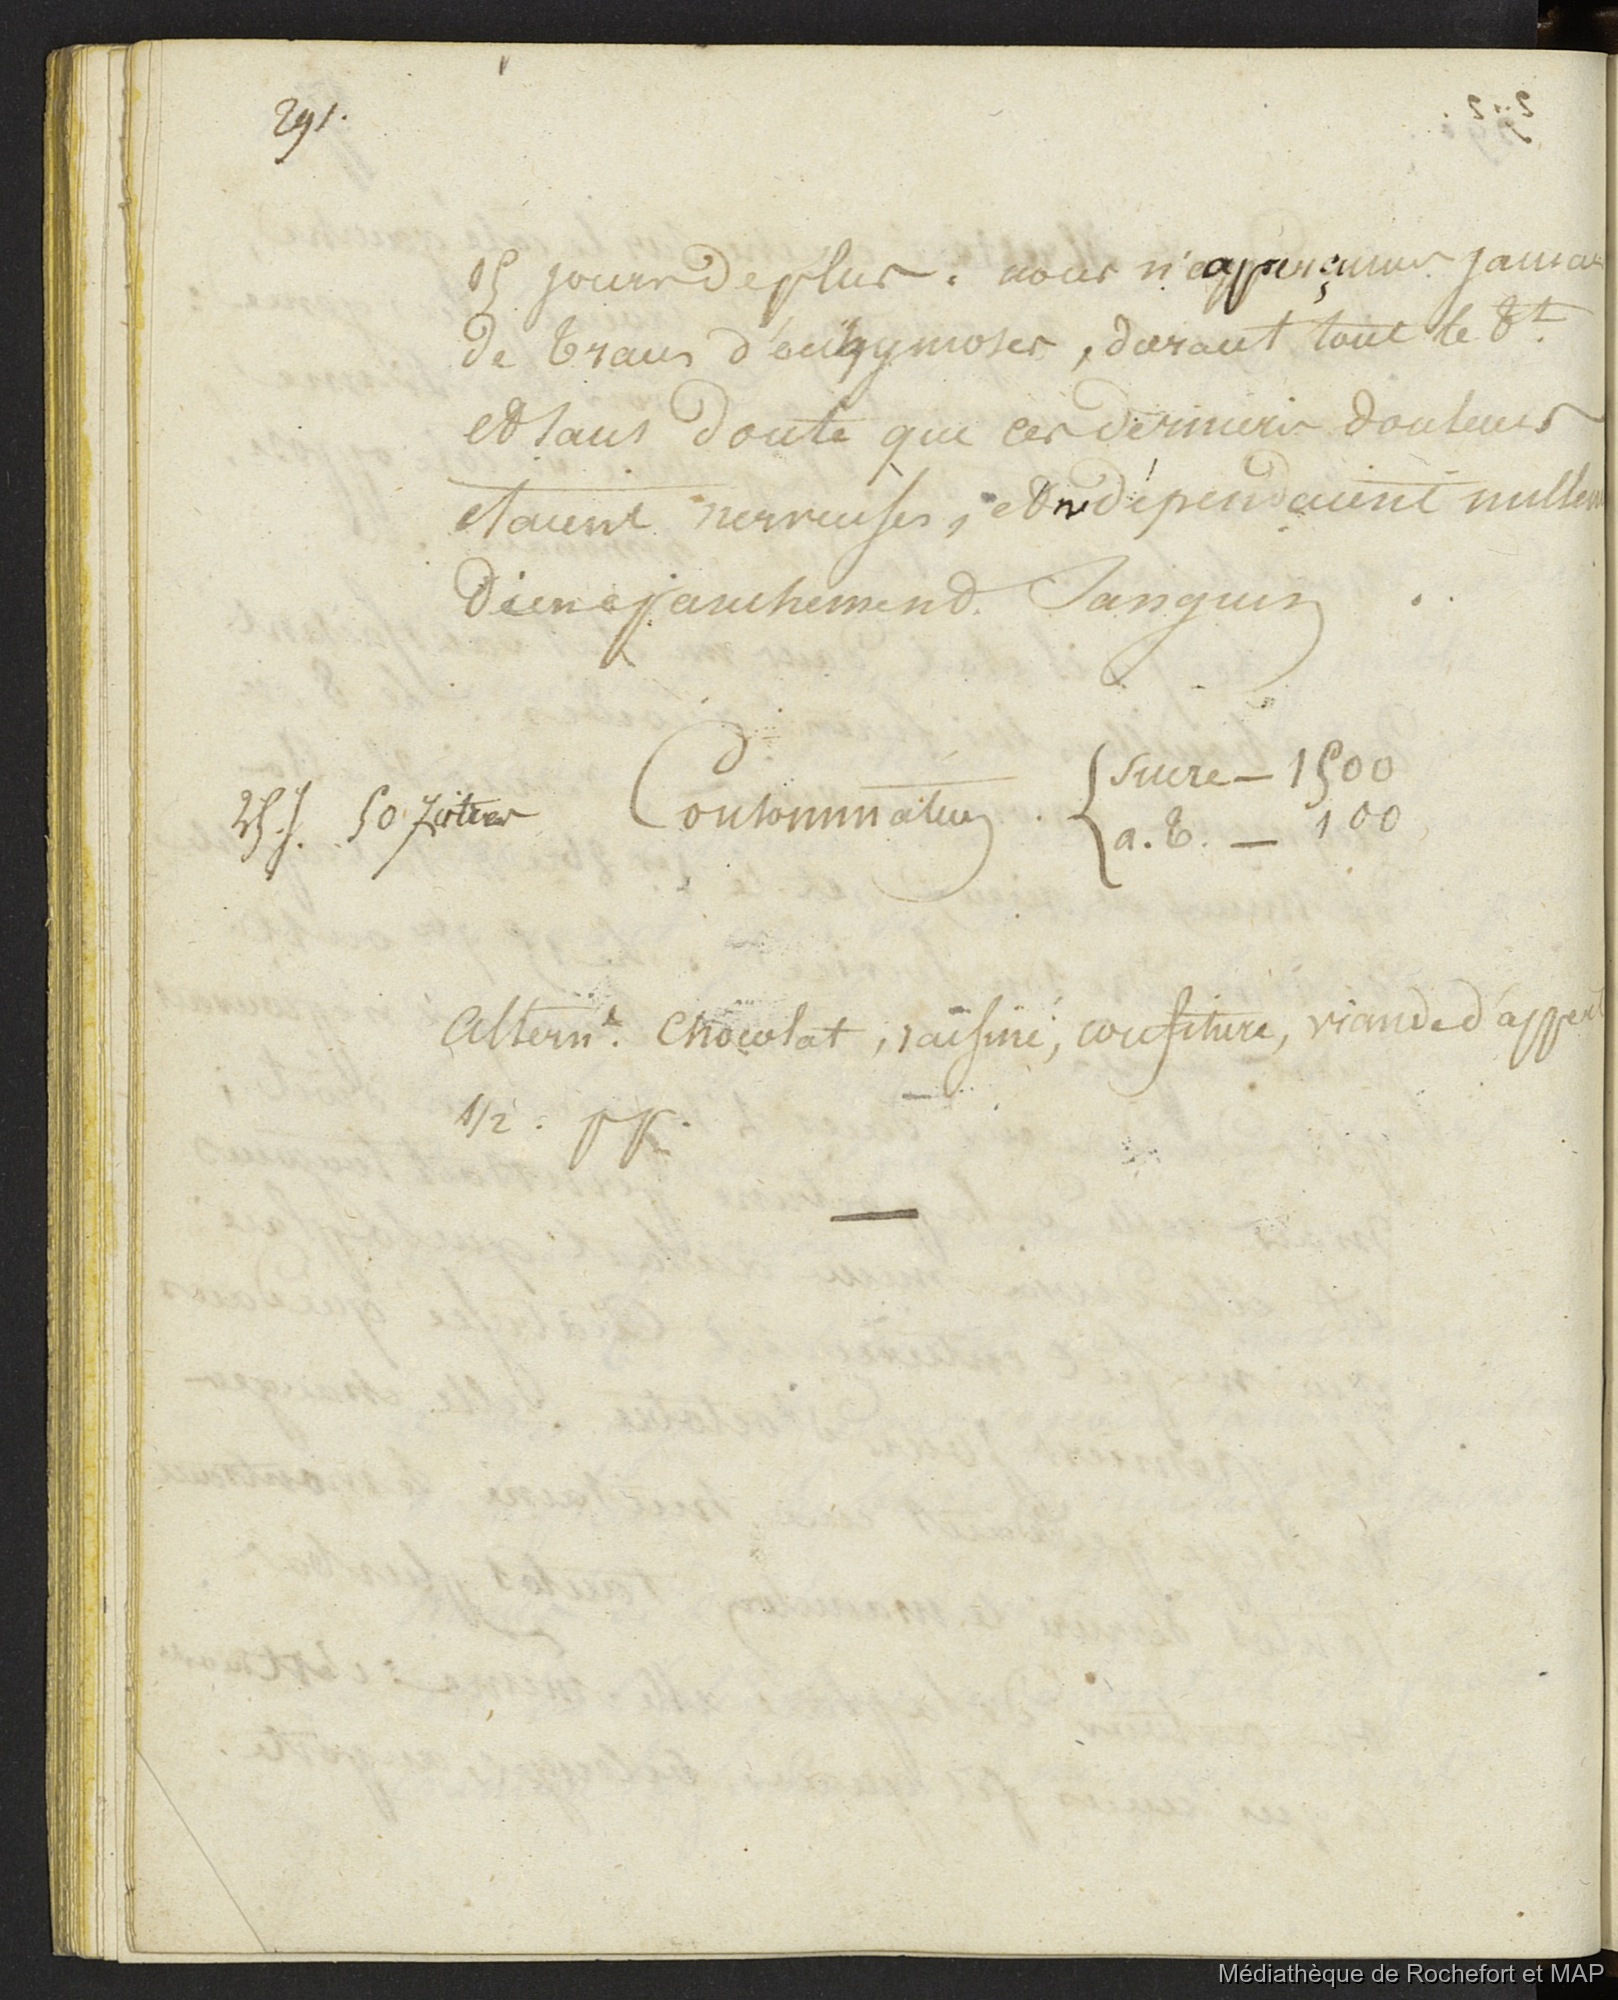 291.
15 jours de plus. nous n'apperçumes jamais
de traces d'ecchymoses, durant tout le tt.
et sans doute que ces dernieres douleurs
etaient nerveuses, et ne dépendaient nullem
d'un epanchement Sanguin
25 j. 50 litres Consommation. { Sucre — 1500
a. t. — 100
altern.t chocolat, raisiné, confiture, viande d'appert
1/2 : pp.
Médiathèque de Rochefort et MAP